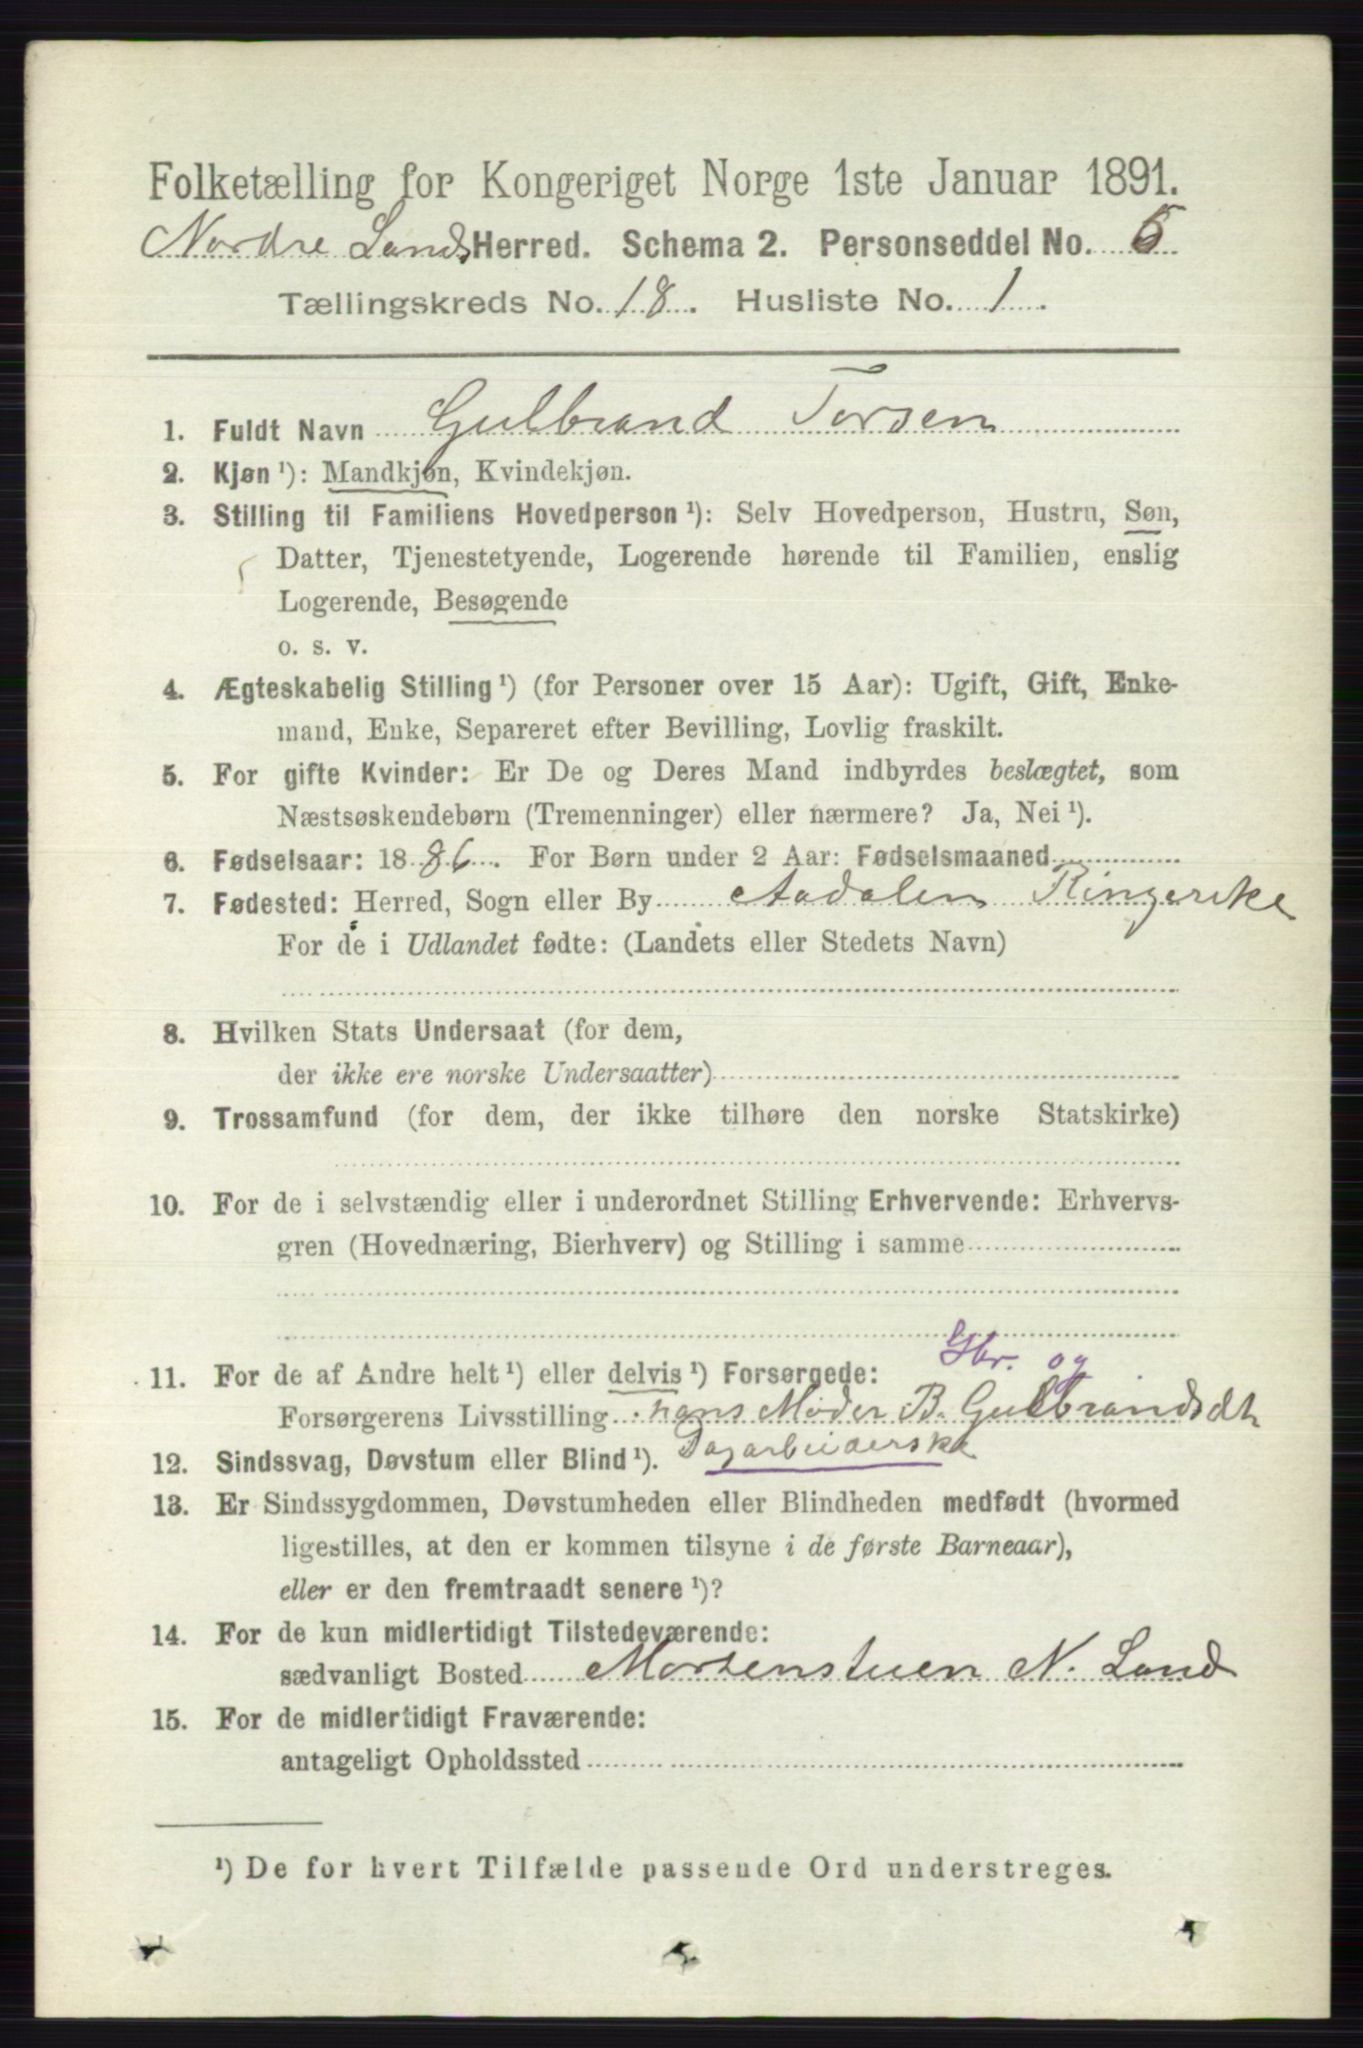 Folketælling for Kongeriget Norge 1ste Januar 1891.
Nordre Lands Herred. Schema 2. Personseddel No. 5
Tællingskreds No. 18. Husliste No. 1.
1. Fuldt Navn Gulbrand Torsen
2. Kjøn ¹): Mandkjøn, Kvindekjøn.
3. Stilling til Familiens Hovedperson ¹): Selv Hovedperson, Hustru, Søn,
Datter, Tjenestetyende, Logerende hørende til Familien, enslig
Logerende, Besøgende
o. s. v.
4. Ægteskabelig Stilling ¹) (for Personer over 15 Aar): Ugift, Gift, Enke-
mand, Enke, Separeret efter Bevilling, Lovlig fraskilt.
5. For gifte Kvinder: Er De og Deres Mand indbyrdes beslægtet, som
Næstsøskendebørn (Tremenninger) eller nærmere? Ja, Nei ¹).
6. Fødselsaar: 1886. For Børn under 2 Aar: Fødselsmaaned
7. Fødested: Herred, Sogn eller By Aadalen Ringerike
For de i Udlandet fødte: (Landets eller Stedets Navn)
8. Hvilken Stats Undersaat (for dem,
der ikke ere norske Undersaatter)
9. Trossamfund (for dem, der ikke tilhøre den norske Statskirke)
10. For de i selvstændig eller i underordnet Stilling Erhvervende: Erhvervs-
gren (Hovednæring, Bierhverv) og Stilling i samme
Gbr. og
11. For de af Andre helt ¹) eller delvis ¹) Forsørgede:
Forsørgerens Livsstilling hans Moder B. Gulbrandsdt
Dagarbeiderske
12. Sindssvag, Døvstum eller Blind ¹).
13. Er Sindssygdommen, Døvstumheden eller Blindheden medfødt (hvormed
ligestilles, at den er kommen tilsyne i de første Barneaar),
eller er den fremtraadt senere ¹)?
14. For de kun midlertidigt Tilstedeværende:
sædvanligt Bosted Mortenstuen N. Land
15. For de midlertidigt Fraværende:
antageligt Opholdssted
¹) De for hvert Tilfælde passende Ord understreges.